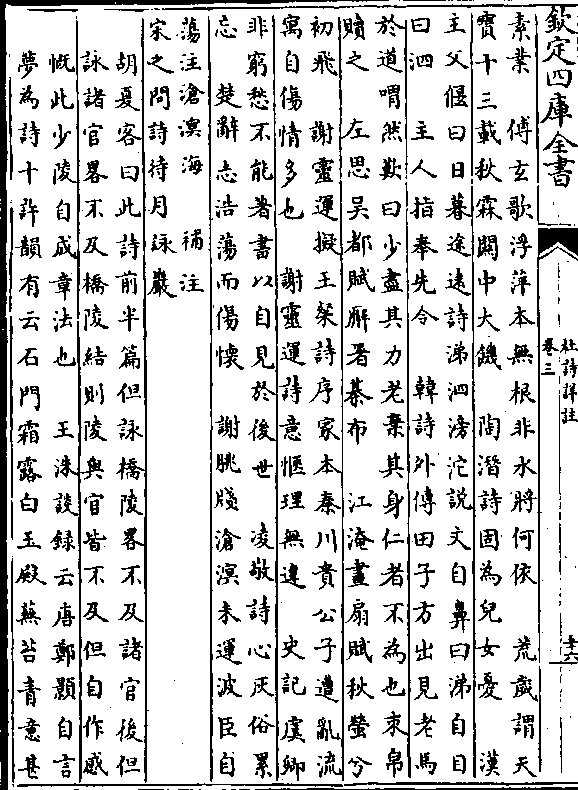 欽定四庫全書
杜詩詳註
卷三
十六
素業　傅玄歌浮萍本無根非水將何依　荒歲謂天
寶十三載秋霖關中大饑　陶潛詩固為兒女憂　漢
主父偃曰日暮途遠詩涕泗滂沱說文自鼻曰涕自目
曰泗　主人指奉先令　韓詩外傳田子方出見老馬
於道喟然歎曰少盡其力老棄其身仁者不為也束帛
贖之　左思吳都賦廨署棊布　江淹畫扇賦秋螢兮
初飛　謝靈運擬王粲詩序家本秦川貴公子遭亂流
寓自傷情多也　謝靈運詩意愜理無違　史記虞卿
非窮愁不能著書以自見於後世　凌敬詩心灰俗累
忘　楚辭志浩蕩而傷懷　謝朓牋滄溟未運波臣自
蕩注滄溟海　補注
宋之問詩待月詠巖
胡夏客曰此詩前半篇但詠橋陵畧不及諸官後但
詠諸官畧不及橋陵結則陵與官皆不及但自作感
慨此少陵自成章法也　王洙談録云唐鄭顥自言
夢為詩十許韻有云石門霜露白玉殿蘚苔青意甚